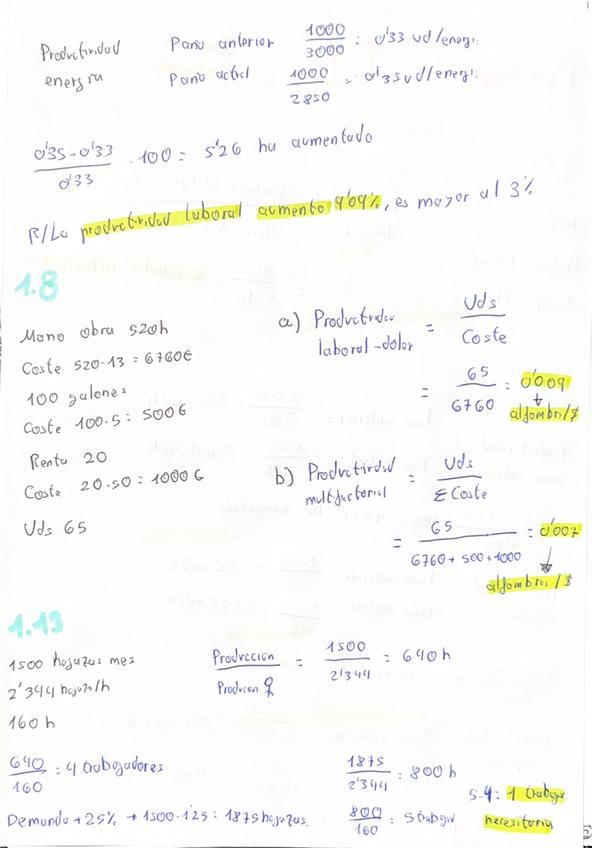 Productividad energia
Pano anterior 1000/3000 = 0'33 ud/energi.
Pano actl 1000/2850 = 0'35 ud/energi
0'35-0'33/0'33 . 100 = 5'26 ha aumentado
R/La productividad laboral aumento 9'09%, es mayor al 3%
1.8
Mano obra 520h
Coste 520.13 = 6760€
100 galones
Coste 100.5 = 500€
Renta 20
Coste 20.50 = 1000€
Uds 65
a) Productividad laboral-dolar = Uds/Coste
= 65/6760 = 0'009
alfombra/$
b) Productividad multifactorial = Uds/Σ Coste
= 65/6760 + 500 + 1000 = 0'007
alfombras/$
1.13
1500 hojazas mes
2'344 hojaza/h
160 h
Produccion = 1500/2'344 = 640h
640/160 = 4 trabajadores
Demanda + 25% → 1500.1'25 = 1875 hojazas.
1875/2'344 = 800h
800/160 = 5 trabajo
5-4 = 1 trabajo necesitaria